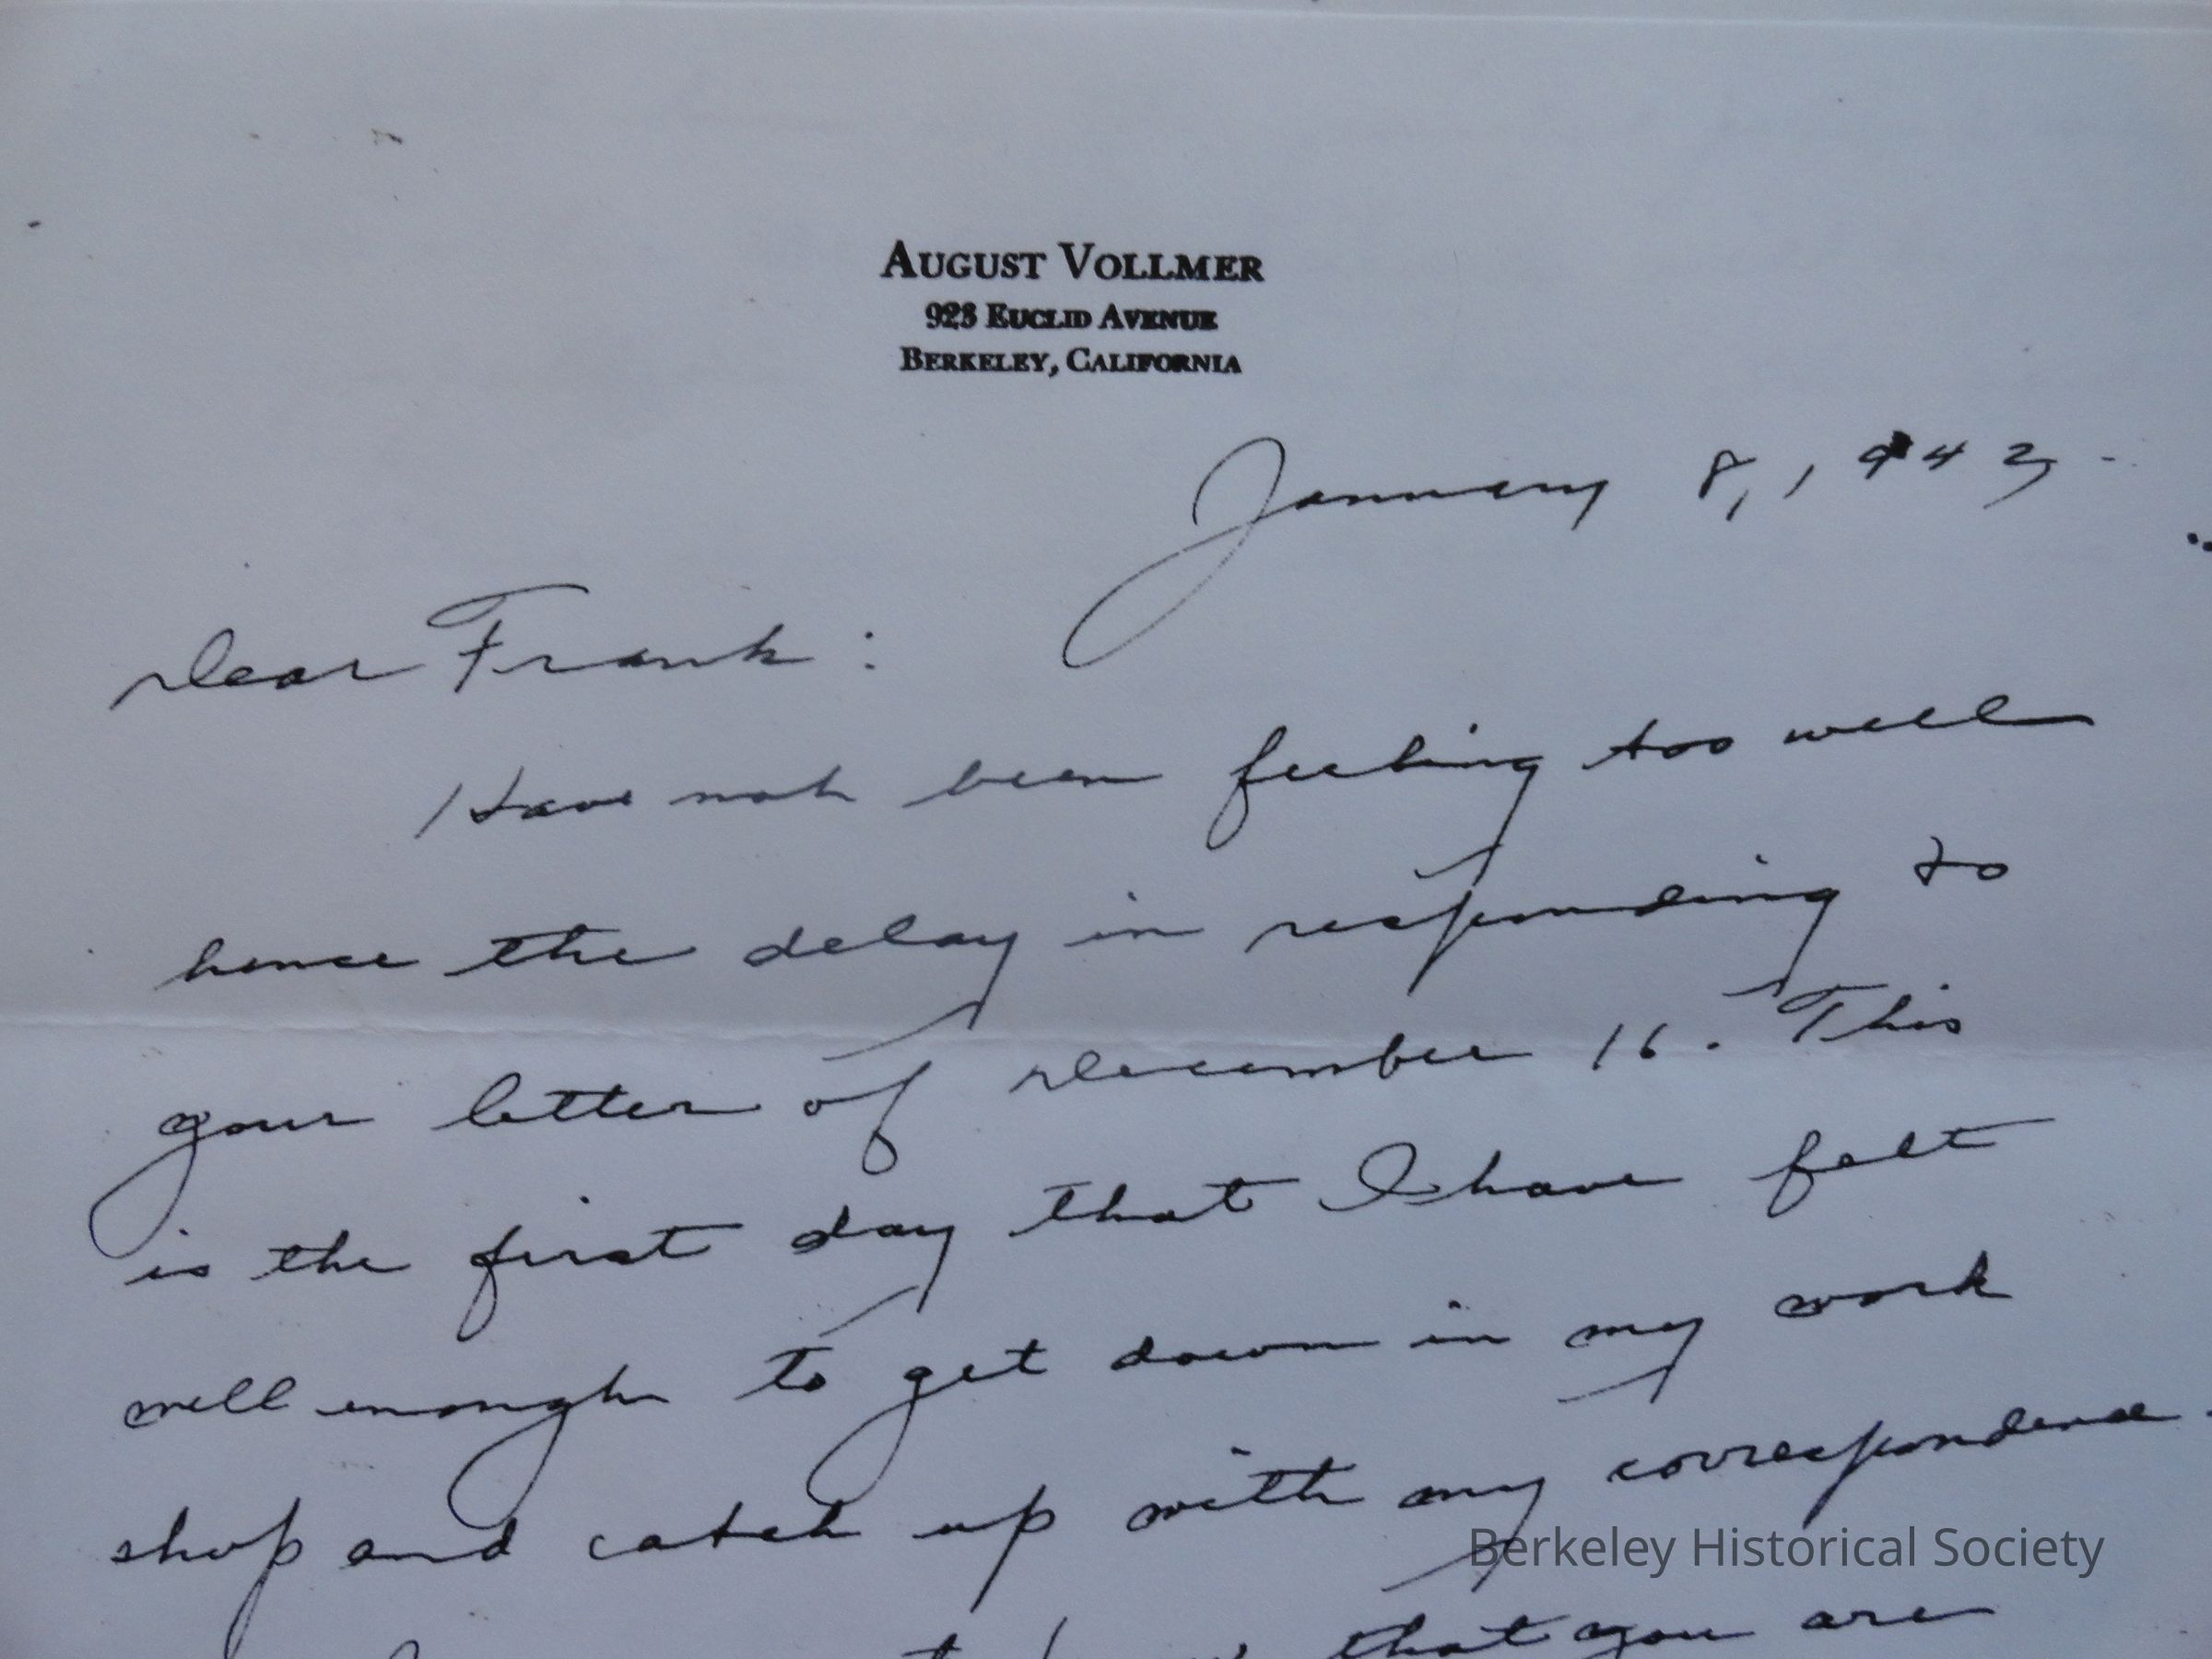 AUGUST VOLLMER
923 EUCLID AVENUE
BERKELEY, CALIFORNIA
January 8, 1942 -
Dear Frank:
Have not been feeling too well
hence the delay in responding to
your letter of December 16. This
is the first day that I have felt
well enough to get down in my work
shop and catch up with my correspondence.
Berkeley Historical Society
that you are